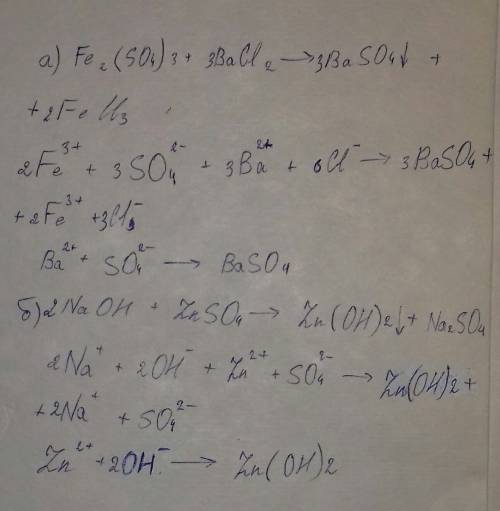 а) Fe₂(SO₄)₃ + 3BaCl₂ → 3BaSO₄↓ +
+ 2FeCl₃
2Fe³⁺ + 3SO₄²⁻ + 3Ba²⁺ + 6Cl⁻ → 3BaSO₄ +
+ 2Fe³⁺ + 3Cl⁻
Ba²⁺ + SO₄²⁻ → BaSO₄
б) 2NaOH + ZnSO₄ → Zn(OH)₂↓ + Na₂SO₄
2Na⁺ + 2OH⁻ + Zn²⁺ + SO₄²⁻ → Zn(OH)₂ +
+ 2Na⁺ + SO₄²⁻
Zn²⁺ + 2OH⁻ → Zn(OH)₂